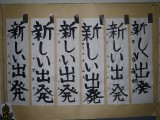 新しい出発
新しい出発
新しい出発
新しい出発
新しい出発
新しい出発